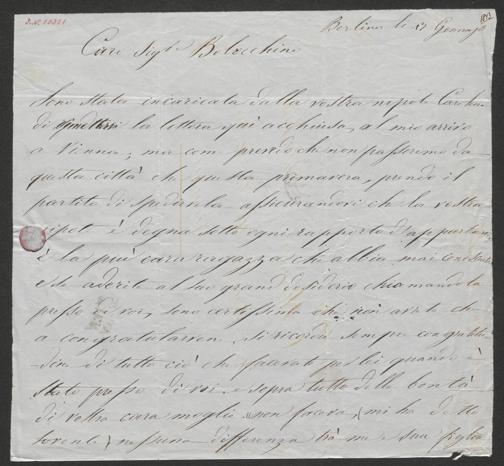 J.N. 10321
1842
Berlino le 27 Gennajo
Caro Sigr Balocchino
Sono stata incaricata dalla vostra nipote Carolina
di la lettera qui acchiusa, al mio arrivo
a Vienna, ma com prevedo che non passeremo da
questa città che questa primavera, prendo il
partito di assicurandovi che la vostra
nipote è degna sotto ogni rapporto d'appartenervi
È la più cara ragazza che abbia mai conosciuta
e se aderite al suo grand desiderio chiamandola
presso di voi, sono certissima che non avrete che
a congratularvene, si ricorda sempre con gratitu-
dine di tutto ciò che facevate per lei quando è
stata presso di voi e sopra tutto delle bontà
di vostra cara moglie che non faceva, (mi ha detto
sovente) nessuna differenza trà me e sua figlia